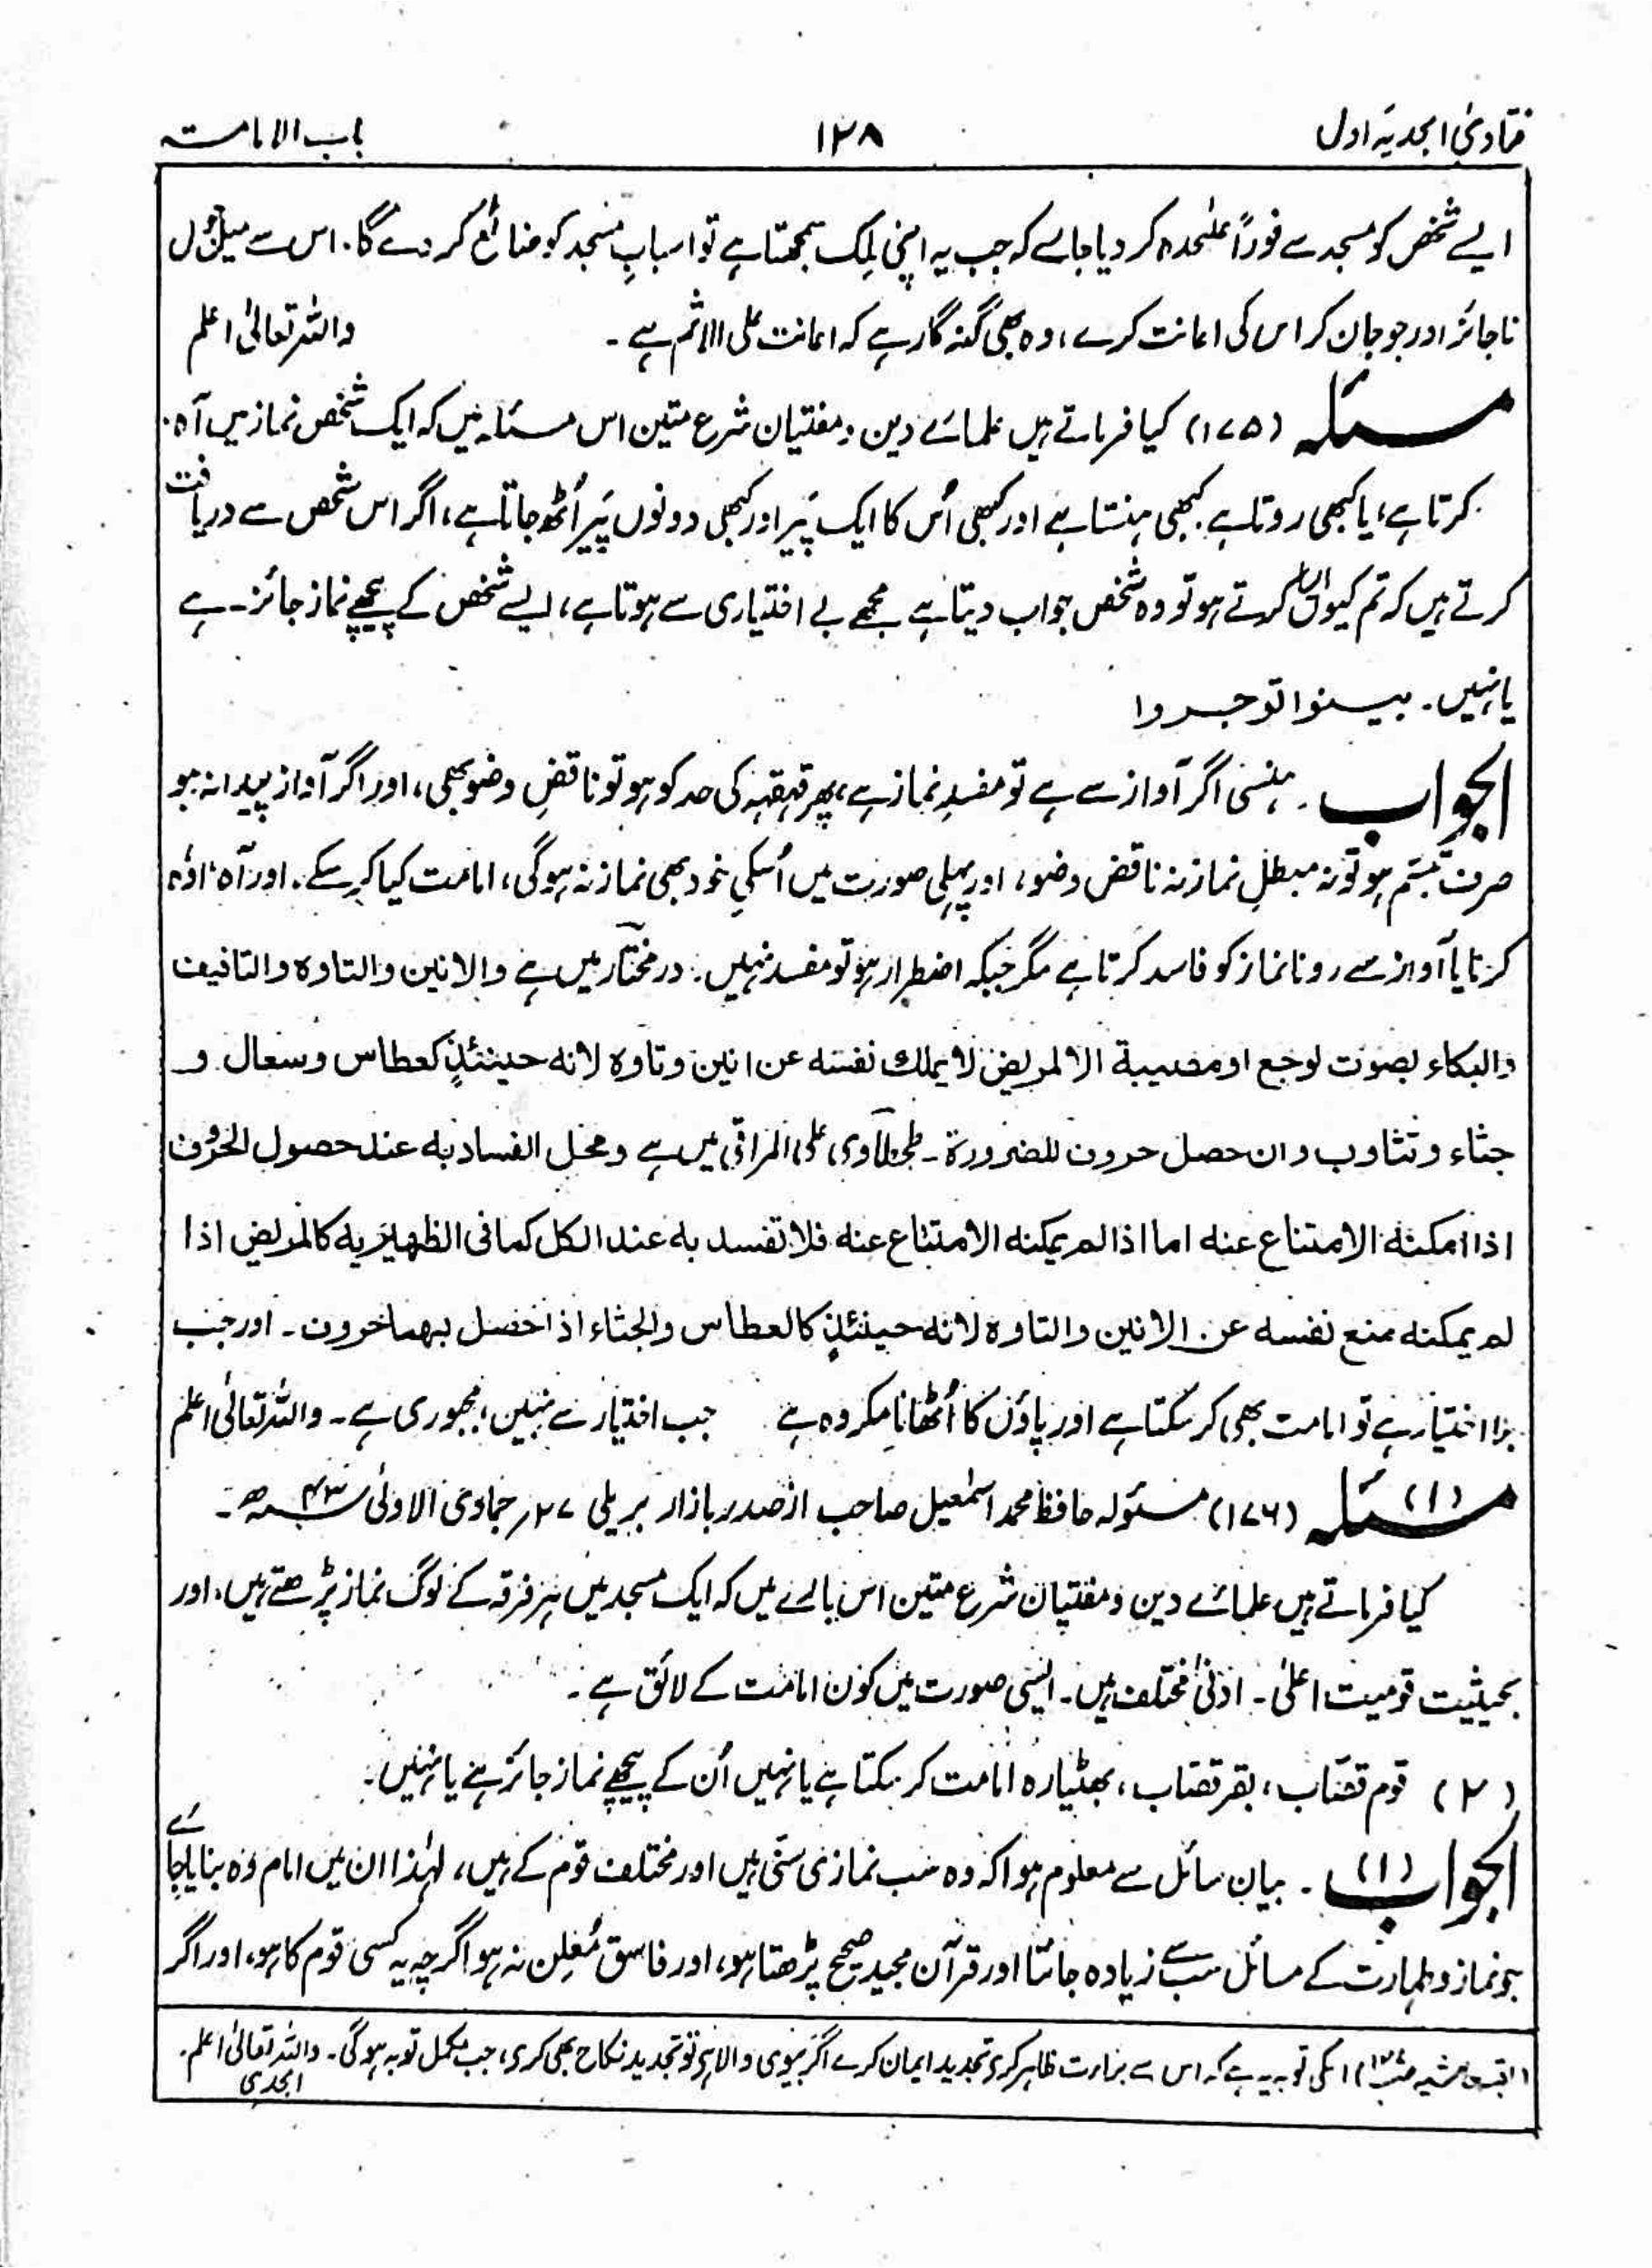 فتاویٰ امجدیہ اول ۱۲۸ باب الامامت
ایسے شخص کو مسجد سے فوراً علٰحدہ کر دیا جائے کہ جب یہ اپنی مِلک سمجھتا ہے تو اسبابِ مسجد کو ضائع کر دے گا۔ اس سے میل جول
ناجائز اور جو جان کر اس کی اعانت کرے، وہ بھی گنہگار ہے کہ اعانت علی الاثم ہے۔ واللہ تعالیٰ اعلم
مسئلہ (۱۷۵) کیا فرماتے ہیں علمائے دین و مفتیان شرع متین اس مسئلہ میں کہ ایک شخص نماز میں آہ
کرتا ہے، یا کبھی روتا ہے۔ کبھی ہنستا ہے اور کبھی اُس کا ایک پَیر اور کبھی دونوں پَیر اُٹھ جاتا ہے، اگر اس شخص سے دریافت
کرتے ہیں کہ تم کیوں ایسا کرتے ہو تو وہ شخص جواب دیتا ہے مجھے بے اختیاری سے ہوتا ہے، ایسے شخص کے پیچھے نماز جائز ہے
یا نہیں۔ بینوا توجروا
الجواب۔ ہنسی اگر آواز سے ہے تو مفسدِ نماز ہے، پھر قہقہہ کی حد کو ہو تو ناقضِ وضو بھی، اور اگر آواز پیدا نہ ہو
صرف تبسّم ہو تو نہ مبطلِ نماز نہ ناقض وضو، اور پہلی صورت میں اُسکی خود بھی نماز نہ ہوگی، امامت کیا کر سکے۔ اور آہ، اوہ
کرنا یا آواز سے رونا نماز کو فاسد کرتا ہے مگر جبکہ اضطرار ہو تو مفسد نہیں۔ درمختار میں ہے والانین والتاوہ والتافیف
والبکاء بصوت لوجع او مصیبة الا لمریض لا یملك نفسه عن انین وتاوہ لانه حینئذٍ کعطاس وسعال و
جثاء وتثاوب وان حصل حروف للضرورة۔ طحطاوی علی المراقی میں ہے ومحل الفساد به عند حصول الحروف
اذا امکنه الامتناع عنه اما اذا لم یمکنه الامتناع عنه فلا تفسد به عند الکل کما فی الظهیریه کالمریض اذا
لم یمکنه منع نفسه عن الانین والتاوہ لانه حینئذٍ کالعطاس والجثاء اذا حصل بهما حروف۔ اور جب
بلا اختیار ہے تو امامت بھی کر سکتا ہے اور پاؤں کا اُٹھانا مکروہ ہے جب اختیار سے نہیں، مجبوری ہے۔ واللہ تعالیٰ اعلم
مسئلہ (۱) (۱۷۶) مسئولہ حافظ محمد اسمٰعیل صاحب از صدر بازار بریلی ۲۷؍ جمادی الاولیٰ ۴۳ھ۔
کیا فرماتے ہیں علمائے دین و مفتیان شرع متین اس بارے میں کہ ایک مسجد میں ہر فرقہ کے لوگ نماز پڑھتے ہیں، اور
بحیثیت قومیت اعلیٰ۔ ادنیٰ مختلف ہیں۔ ایسی صورت میں کون امامت کے لائق ہے۔
(۲) قوم قصّاب، بقر قصّاب، بھٹیارہ امامت کر سکتا ہے یا نہیں اُن کے پیچھے نماز جائز ہے یا نہیں۔
الجواب (۱)۔ بیان سائل سے معلوم ہوا کہ وہ سب نمازی سنّی ہیں اور مختلف قوم کے ہیں، لہٰذا ان میں امام وہ بنایا جائے
جو نماز و طہارت کے مسائل سب سے زیادہ جانتا اور قرآن مجید صحیح پڑھتا ہو، اور فاسق مُعلِن نہ ہو اگرچہ یہ کسی قوم کا ہو، اور اگر
(بقیہ حاشیہ) اسکی توبہ یہ ہے کہ اس سے براءت ظاہر کرے تجدید ایمان کرے اگر بیوی والا ہو تو تجدید نکاح بھی کرے، جب مکمل توبہ ہوگی۔ واللہ تعالیٰ اعلم۔
امجدی